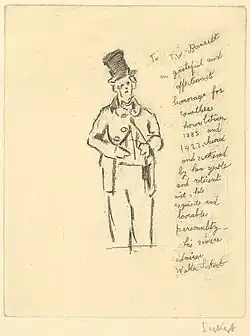 To T. W. Barrett
in grateful and
affectionate
homage for
countless
between
1885 and
1922 cheered
and sustained
by his gentle
and reticent
art, his
exquisite and
lovable
personality –
his sincere
admirer
Walter Sickert
Sickert